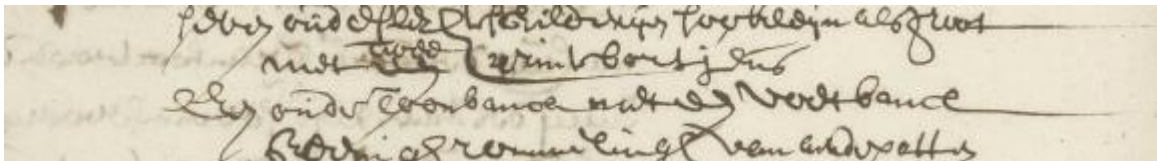 seven oude schilderijen soo kleijn als groot
met twee printbortjens
Een oude toonbanck met een voetbanck
Eenige rommelingh van oude potten